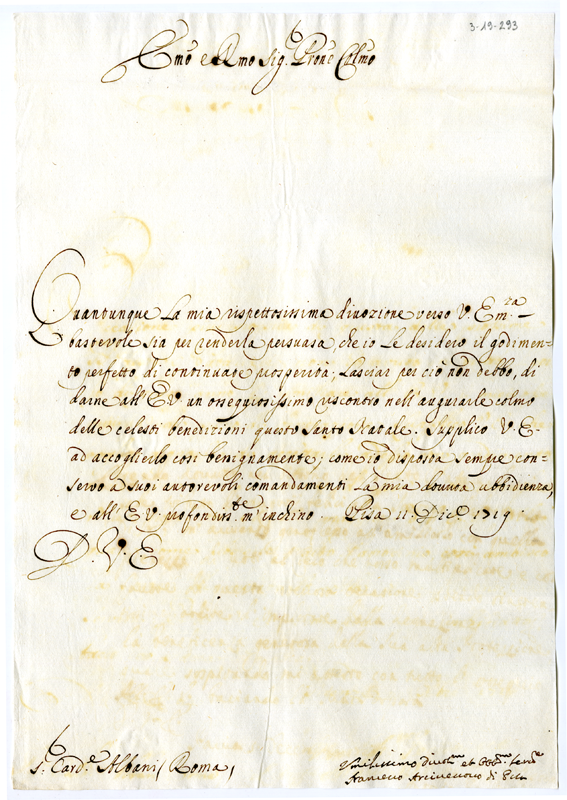 3-19-293
Emo e Rmo Sig.r Prone Colmo
Quantunque la mia rispettosissima divozione verso V. Em.za
bastevole sia per renderla persuasa, che io le desidero il godimen-
to perfetto di continuate prosperità; lasciar per ciò non debbo, di
darne all'E.V. un ossequiosissimo riscontro nell'augurarle colmo
delle celesti benedizioni questo Santo Natale. Supplico V.E.
ad accoglierlo così benignamente; come io disposta sempre con-
servo a suoi autorevoli comandamenti la mia dovuta ubbidienza,
e all'E.V. profondis.te m'inchino. Pisa 11. Dic.e 1719.
D. V. E
S.r Card.e Albani (Roma)
Umilissimo divot.mo et Obb.mo Serv.re
Francesco Arcivescovo di Pisa